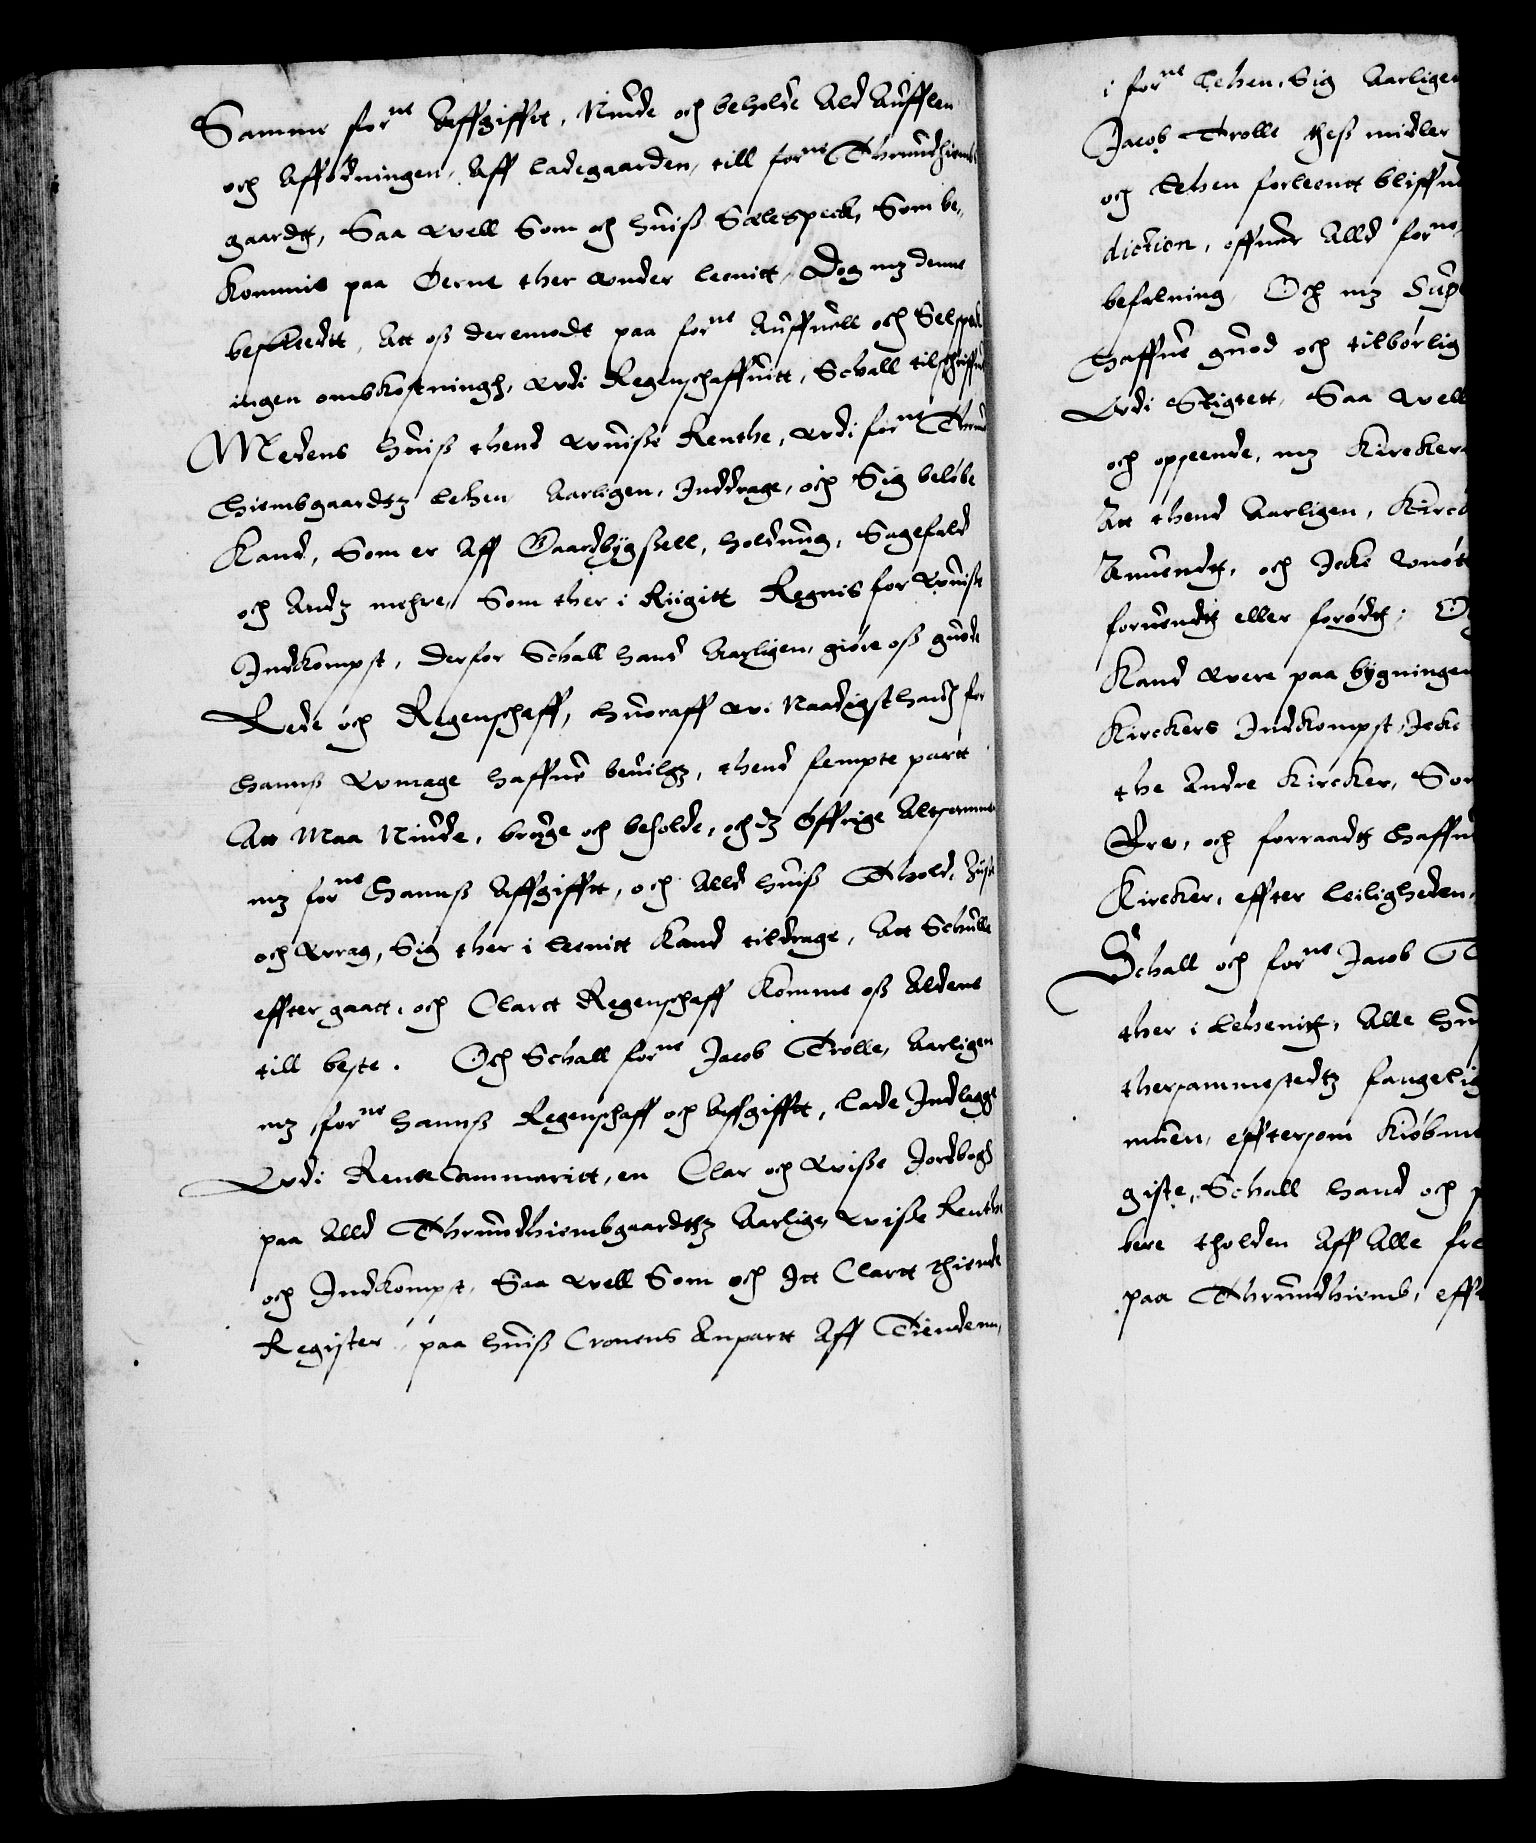 Samme forne Affgifftt, Niude och beholde Ald Aufflen
och Affødningen, Aff ladegaarden, till forne Thrundhiembs
gaardt, Saa well Som och huiß Sælespeck, Som be,
kommis paa Øerne ther wnder leenitt, Dog mz denne
beskeedtt, Att oß deremodt paa forne Auffuell och Selspeck
ingen ombkostningh, wdi Regenschaffuitt, Schall tilschriffuis
Medens huiß thend wuisse Renthe, wdi forne Thrund
hiembgaardtz Lehen Aarligen, Inddrage, och Sig beløbe
Kand, Som er Aff Gaardbygsell, holdning, Sagefald
och Andz mehre, Som ther i Riigitt Regnis for wuisse
Indkompst, derfor Schall hand Aarligen, giøre oß guode
Rede och Regenschaff, huoraff wi Naadigst handz for
hanns wmage haffuer beuilgt, thend fempte partt
Att Maa Niude, bruge och beholde, och dz Øffrige Altsammen
mz forne hannß Affgifftt, och Alld huiß Thold, Sise
och wrag, Sig ther i leenitt kand tildrage, Att Schulle
effter gaatt, och Clartt Regenschaff komme oß Aldene
till beste. Och Schall forne Jacob Trolle, Aarligen
mz forne hannß Regenschaff och Affgifftt, lade Indlegge
Wdi RenteCammeritt, en Clar och wisse Jordbogh
paa Alld Thrundhiembgaardtz Aarlige wisse Renthe
och Indkompst, Saa well Som och Itt Clartt thiende
Register, paa huiß Cronens Anpartt Aff Tiendenn,
i forne Lehen, Sig Aarligen
Jacob Trolle theß midler
och Lehen forleentt bliffue
diction, offuer Alld forne
befalning, Och mz Sup
haffue guod och tilbørlig
Wdi Stigtett, Saa well
och opseende, mz Kircker
Att thend Aarligen, Kirck
Anuendt, och Icke wnøt
foruendt eller forødt; Og
Kand were paa bygningen
Kirckers Indkompst, Icke
the Andre Kircker, Som
Øre, och forraadt haffue
Kircker, effter Leiligheden,
Schall och forne Jacob T
ther i Lehenitt, Alle hu
thersammestedtz fangelig
muen, efftersom Kiøbme
giste, Schall hand och p
bere tholden Aff Alle fre
paa Thrundhiemb, effte